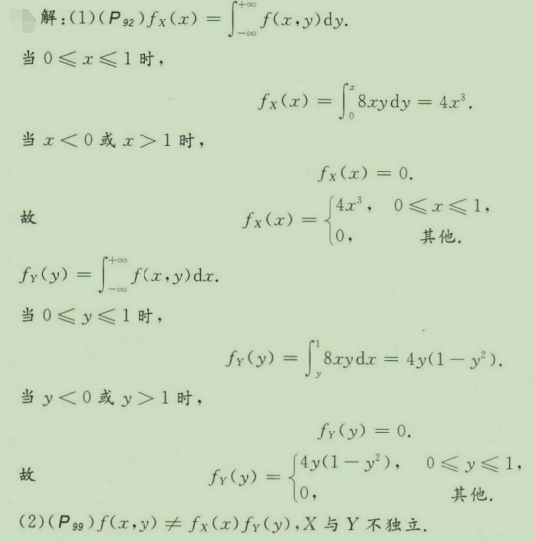 解:(1)(P₉₂)f_X(x) = ∫_{-∞}^{+∞} f(x,y)dy.
当 0 ⩽ x ⩽ 1 时,
f_X(x) = ∫_0^x 8xydy = 4x³.
当 x < 0 或 x > 1 时,
f_X(x) = 0.
故 f_X(x) = { 4x³, 0 ⩽ x ⩽ 1,
0, 其他.
f_Y(y) = ∫_{-∞}^{+∞} f(x,y)dx.
当 0 ⩽ y ⩽ 1 时,
f_Y(y) = ∫_y^1 8xydx = 4y(1 − y²).
当 y < 0 或 y > 1 时,
f_Y(y) = 0.
故 f_Y(y) = { 4y(1 − y²), 0 ⩽ y ⩽ 1,
0, 其他.
(2)(P₉₉)f(x,y) ≠ f_X(x)f_Y(y),X 与 Y 不独立.